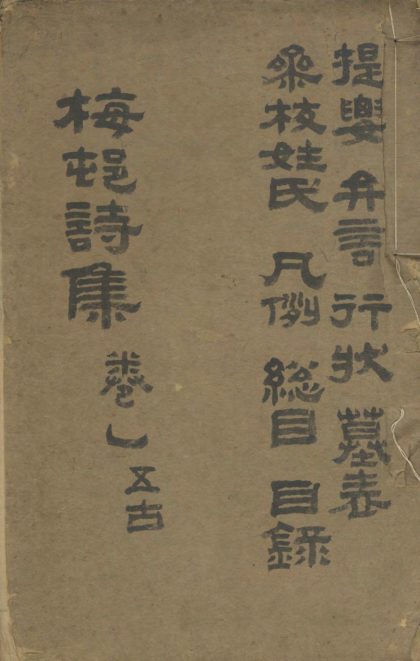 提要 弁言 行狀 墓表
參校姓氏 凡例 総目 目録
梅邨詩集 卷乚 五古